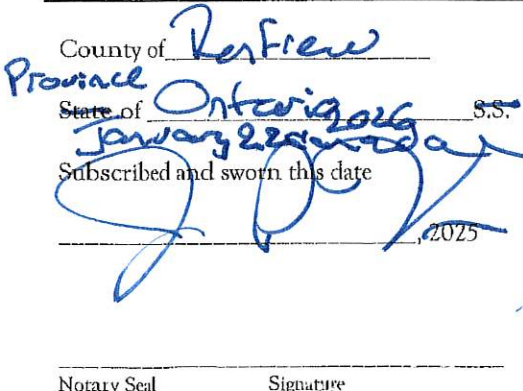 County of Renfrew
Province
State of Ontario S.S.
January 22 2026
Subscribed and sworn this date
, 2025
Notary Seal Signature